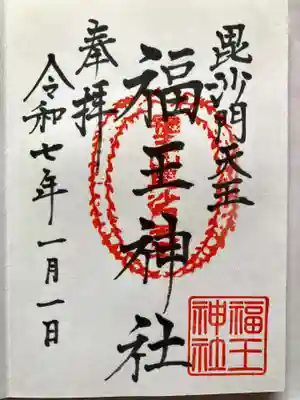 毘沙門天王
福王神社
奉拝
令和七年一月一日
福王
神社